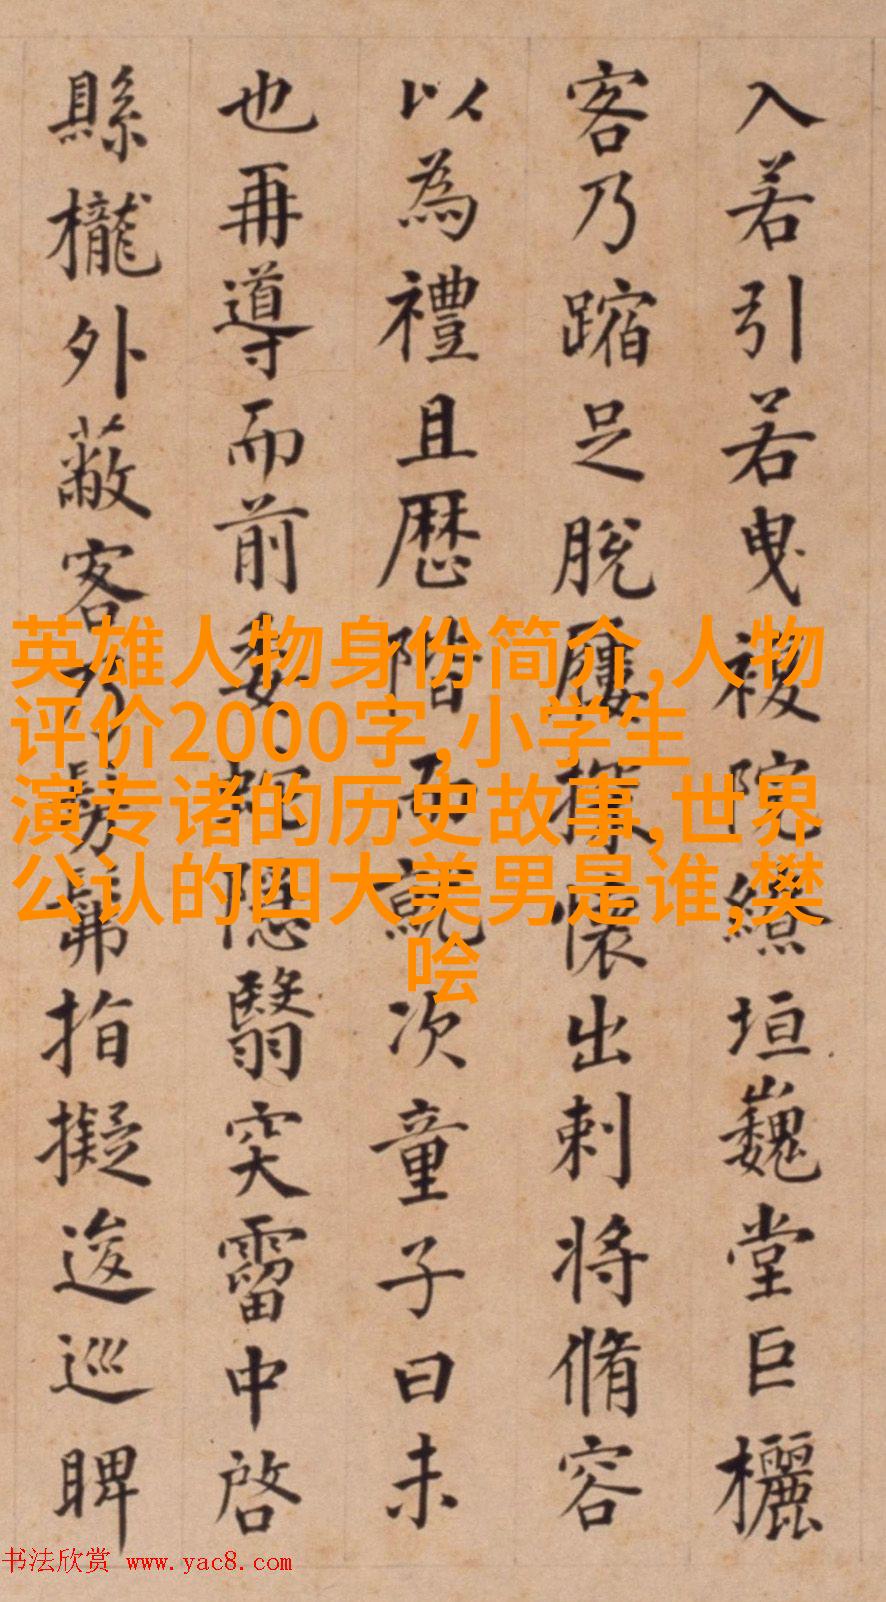 入若引若曳複院繚垣巍堂巨欐
客乃蹜足脫屨探懷出刺將脩容
以為禮且歷階而就次童子曰未
也再導而前委蛇隱翳突霤中啓
縣櫳外蔽客乃髣髴指擬逡巡睥
英雄人物身份简介,人物
评价2000字,小学生
演专诸的历史故事,世界
公认的四大美男是谁,樊
哙
书法欣赏 www.yac8.com